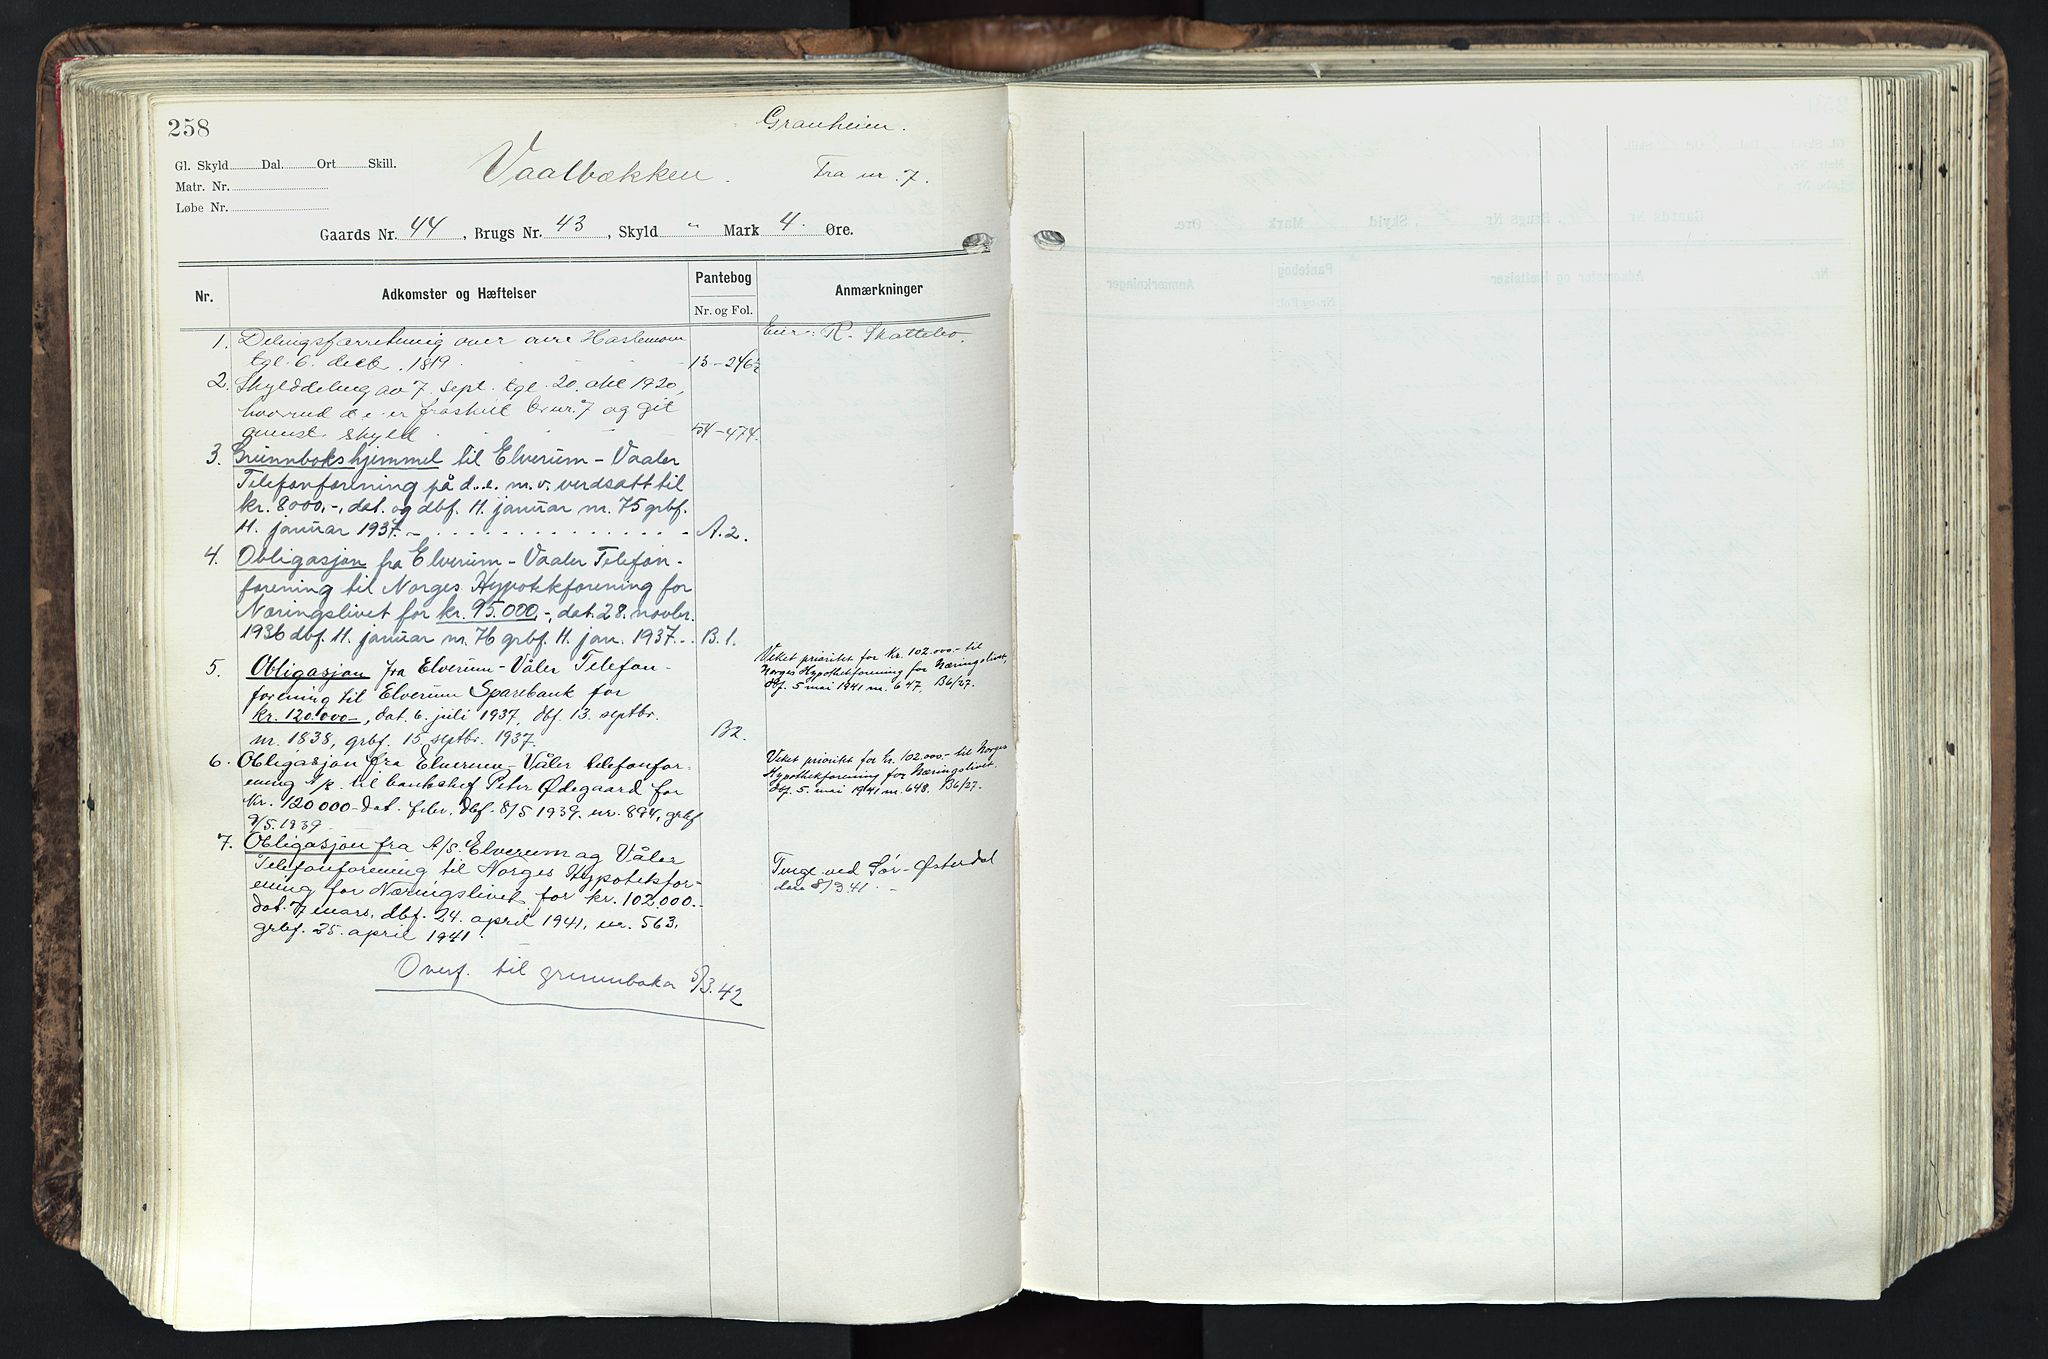 258
Granheim.
Gl. Skyld Dal. Ort Skill.
Vaalbækken.
Fra nr. 7.
Matr. Nr.
Løbe Nr.
Gaards Nr. 44, Brugs Nr. 43, Skyld " Mark 4. Øre.
Nr.
Adkomster og Hæftelser
Pantebog
Nr. og Fol.
Anmærkninger
1. Delingsforretning over øvre Haslemoen
tgl. 6. decb. 1819. 13-246
Eier: R. Skattebo.
2. Skylddeling av 7. sept. tgl. 20. okt 1920,
hvorved d. e. er fraskilt br.nr. 7 og git
skyld 54-474.
3. Grunnbokshjemmel til Elverum-Vaaler
Telefonforening på d. e. m. v. verdsatt til
kr. 8000,-, dat. og dbf. 11. januar nr. 75 grbf.
11. januar 1937.- A.2.
4. Obligasjon fra Elverum-Vaaler Telefon-
forening til Norges Hypotekforening for
Næringslivet for kr. 95.000,-, dat. 28. novbr.
1936 dbf. 11. januar nr. 76 grbf. 11. jan. 1937. B.1.
5. Obligasjon fra Elverum-Våler Telefon-
forening til Elverum Sparebank for
kr. 120.000-, dat. 6. juli 1937, dbf. 13. septbr.
nr. 1838, grbf. 15. septbr. 1937. B2.
Veket prioritet for kr. 102.000.- til
Norges Hypothekforening for Næringslivet,
dbf. 5 mai 1941 nr. 647. B6/27.
6. Obligasjon fra Elverum-Våler telefonfor-
ening A/L til banksjef Peter Ødegaard for
kr. 120 000- dat. febr. dbf. 8/5 1939. nr. 894, grbf
9/5. 1939.
Veket prioritet for kr. 102.000.- til Norges
Hypothekforening for Næringslivet.
dbf. 5. mai 1941 nr. 648. B6/27.
7. Obligasjon fra A/S. Elverum og Våler
Telefonforening til Norges Hypotekfor-
ening for Næringslivet for kr. 102.000.-
dat. 7 mars, dbf. 24. april 1941, nr. 563,
grbf. 25. april 1941.
Tinge ved Sør-Østerdal
8/3 41.
Overf. til grunnboka 5/3.42